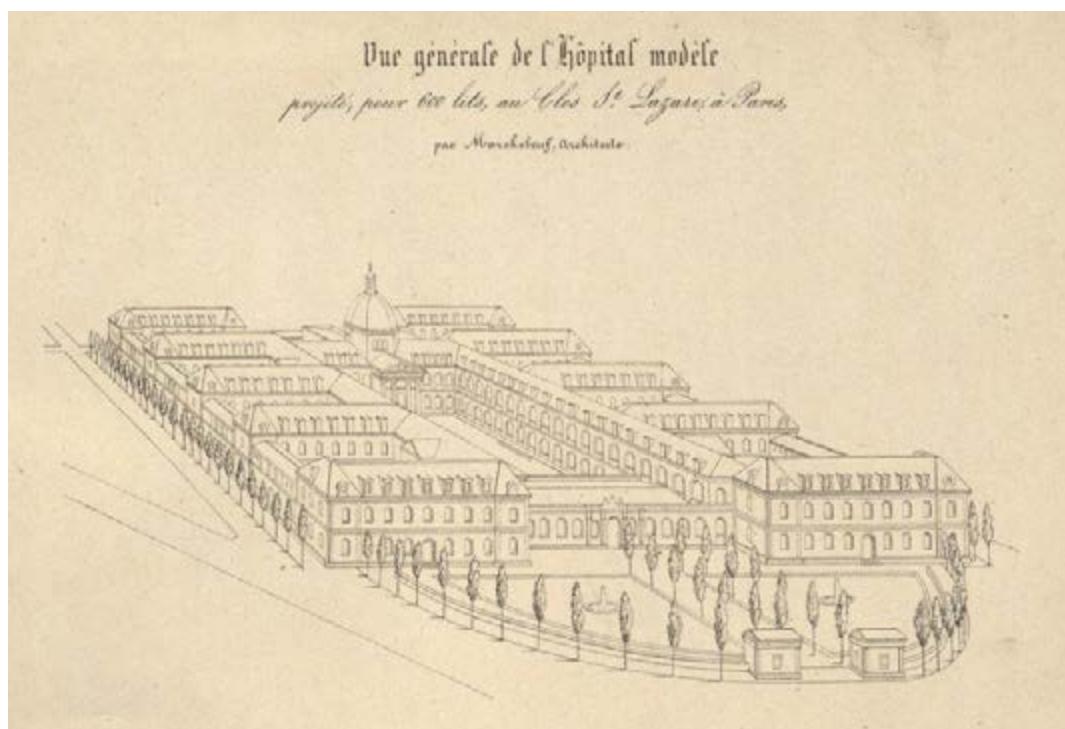 Vue générale de l'Hôpital modèle
projeté, pour 600 lits, au Clos St. Lazare, à Paris,
par Marchebeuf, Architecte.